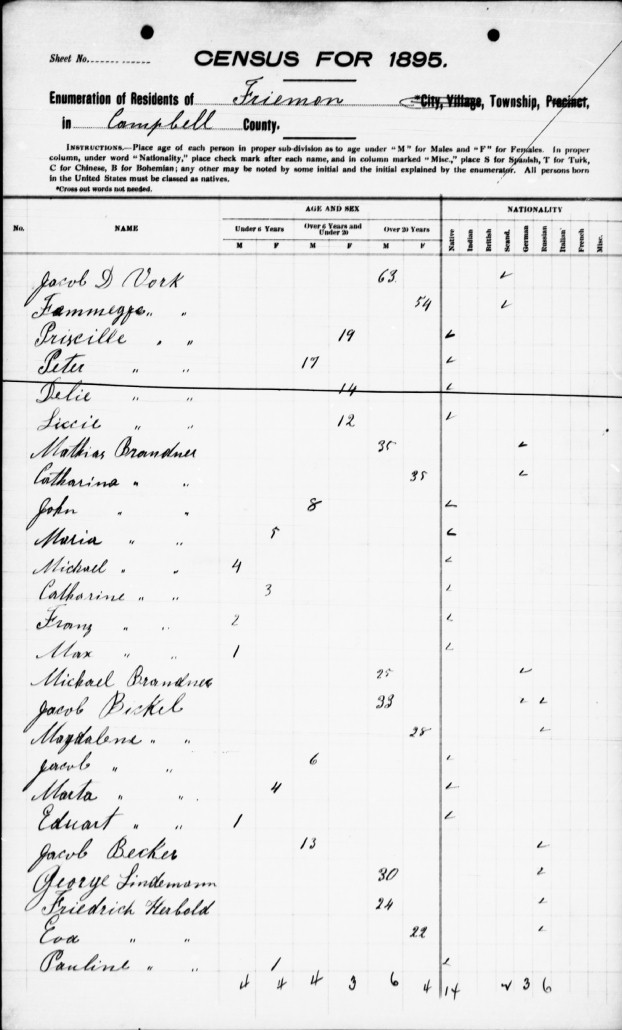 Sheet No.
CENSUS FOR 1895.
Enumeration of Residents of Friemon City, Village, Township, Precinct,
in Campbell County.
INSTRUCTIONS.—Place age of each person in proper sub-division as to age under "M" for Males and "F" for Females. In proper
column, under word "Nationality," place check mark after each name, and in column marked "Misc.," place S for Spanish, T for Turk,
C for Chinese, B for Bohemian; any other may be noted by some initial and the initial explained by the enumerator. All persons born
in the United States must be classed as natives.
*Cross out words not needed.
AGE AND SEX NATIONALITY
No. NAME Under 6 Years Over 6 Years and Under 20 Over 20 Years Native Indian British Scand. German Russian Italian French Misc.
M F M F M F
Jacob D Vork 63 ✓
" " 54 ✓
Priscille " " 19 ✓
Peter " " 17 ✓
Delie " " 14 ✓
Liccie " " 12 ✓
Mathias Brandner 35 ✓
Catharina " " 35 ✓
John " " 8 ✓
Maria " " 5 ✓
Michael " " 4 ✓
Catharine " " 3 ✓
Franz " " 2 ✓
Max " " 1 ✓
Michael Brandner 25 ✓
Jacob Beckel 33 ✓ ✓
Magdalena " " 28 ✓
Jacob " " 6 ✓
Marta " " 4 ✓
Eduart " " 1 ✓
Jacob Becker 13 ✓
George Lindemann 30 ✓
Friedrich Herbold 24 ✓
Eva " " 22 ✓
Pauline " " 1 ✓
4 4 4 3 6 4 14 2 3 6